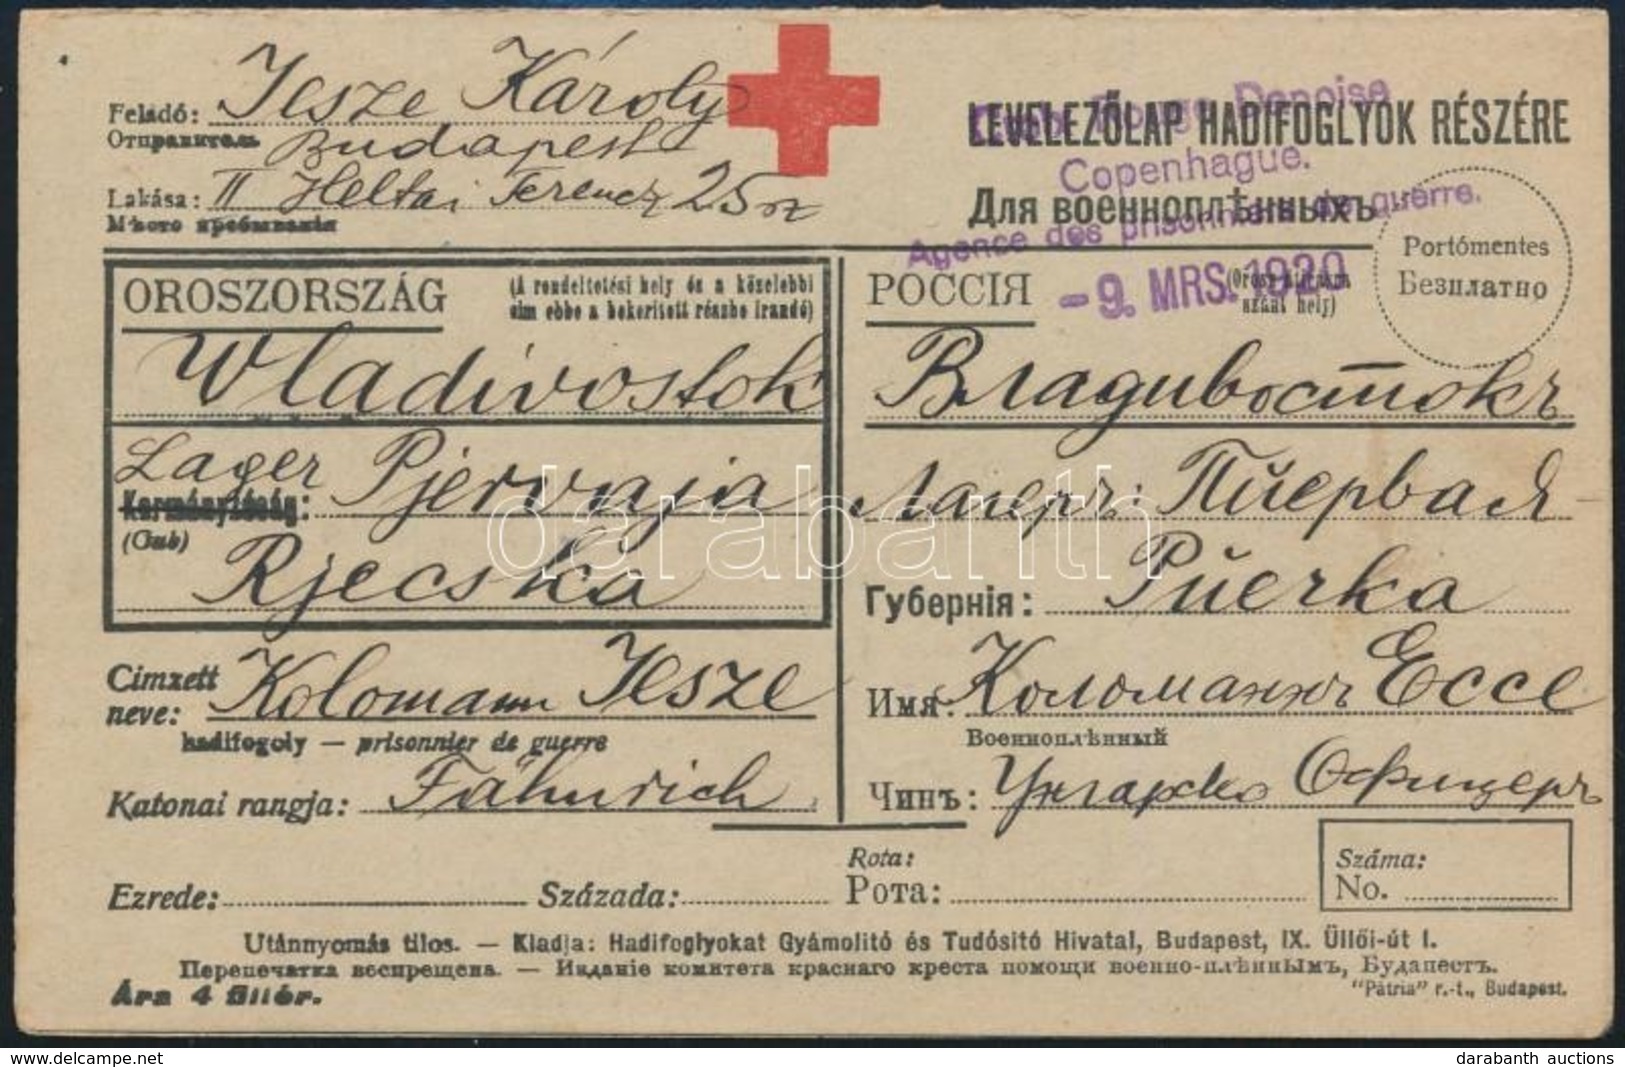 Feladó: Jesze Károly
Отправитель Budapest
Lakása: II Heltai Ferencz 25 sz
Мѣсто пребыванія
LEVELEZŐLAP HADIFOGLYOK RÉSZÉRE
Для военноплѣнныхъ
Croix Rouge Danoise
Copenhague.
Agence des prisonniers de guerre.
- 9. MRS. 1920
Portómentes
Безплатно
OROSZORSZÁG
(A rendeltetési hely és a közelebbi
cim ebbe a bekeritett részbe irandó)
Wladivostok
Lager Pjervaja
Kormányzóság:
(Gub)
Rjecska
Cimzett
neve: Kolomann Jesze
hadifogoly — prisonnier de guerre
Katonai rangja: Fähnrich
РОССІЯ
szánt hely)
Владивостокъ
Лагеръ: Пйервая
Губернія: Рйечка
Имя: Коломаннъ Ессе
Военноплѣнный
Чинъ: Унгарско Офицеръ
Ezrede: Százada:
Rota:
Рота:
Száma:
No.
Utánnyomás tilos. — Kiadja: Hadifoglyokat Gyámolitó és Tudósitó Hivatal, Budapest, IX. Üllői-út 1.
Перепечатка воспрещена. — Изданіе комитета краснаго креста помощи военно-плѣннымъ, Будапестъ.
Ára 4 fillér.
"Pátria" r.-t., Budapest.
darabanth
delcampe.net
darabanth auctions